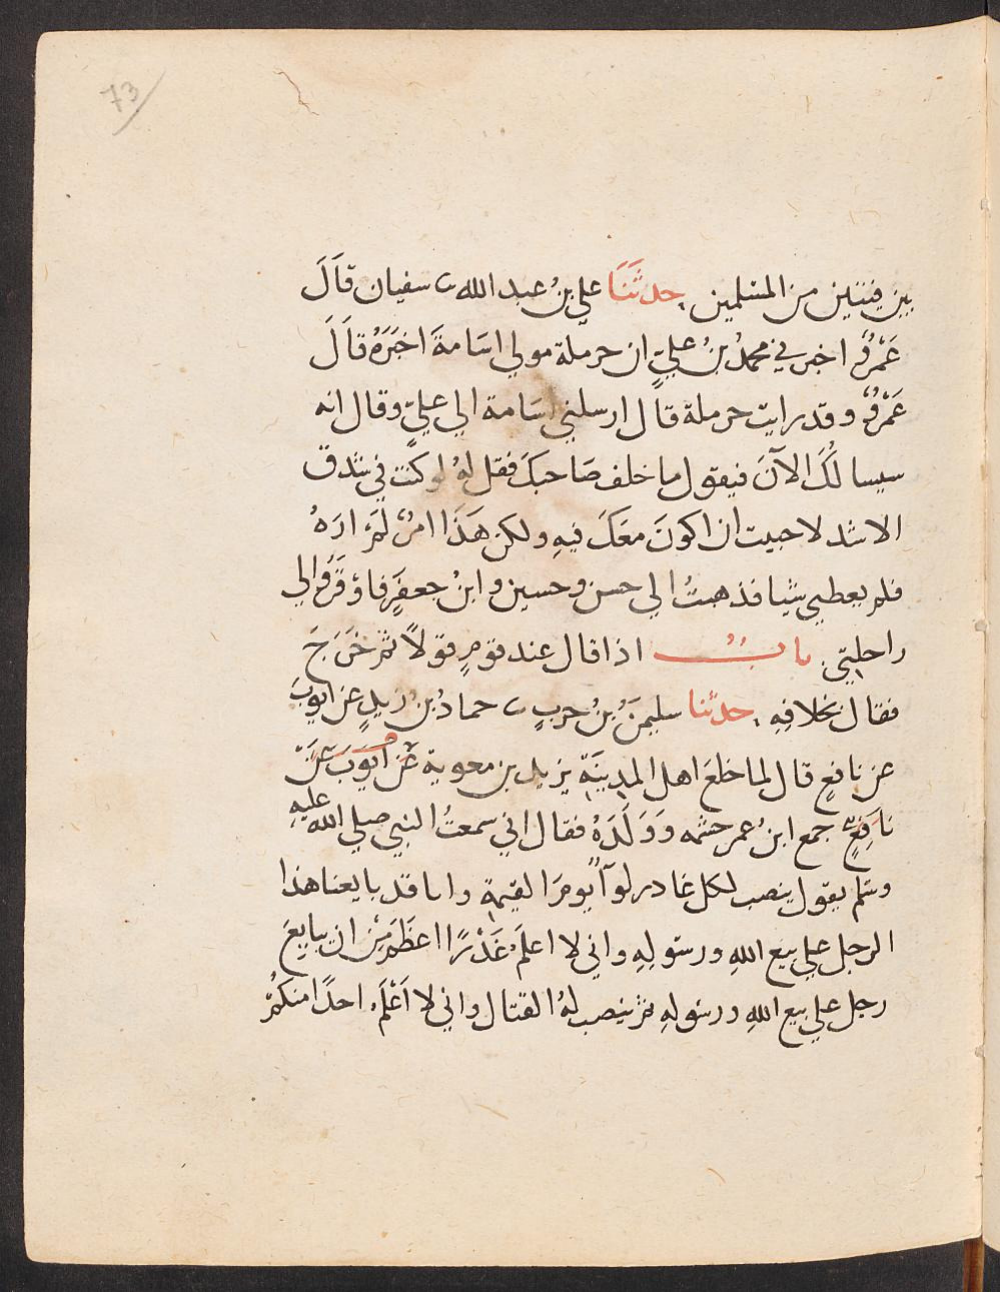 73
بين فئتين من المسلمين حدثَنَا علي بنُ عبد الله ثنا سفيان قَالَ
عَمْرٌو اخبرني محمدُ بنُ عليٍّ ان حرملة مولي اسَامةَ اخبَرَهُ قَالَ
عَمْرٌو وقد رايت حرملة قال ارسلني اسَامة الي عليٍّ وقال انه
سيسالُكَ الآنَ فيقول ما خلف صَاحبكَ فقل لهُ لو كنت في شدق
الاسد لاحببت ان اكونَ معَكَ فيهِ ولكن هَذَا امرٌ لَمْ ارَهُ
فلم يعطني شيا فذهبتُ الي حسن وحسين وابنُ جعفرٍ فاوْقَرُوا لي
راحلتي بابٌ اذا قال عند قومٍ قولاً ثم خَرَجَ
فقال بخلافِهِ حدثنا سليمنُ بنُ حربٍ ثنا حمادُ بنُ زيدٍ عن ايوبَ
عن نافعٍ قال لما خلعَ اهل المدينَةِ يزيد بن معوية عن ايوبَ عَنْ
نَافِعٍ جمع ابنُ عمر حشمه وَوَلَدَهُ فقال اني سمعتُ النبي صلي الله عليهِ
وسَلم يقول ينصب لكل غادر لوآءٌ يومَ القيمة وانا قد بايعنا هذا
الرجل علي بيع اللهِ ورسولِهِ واني لا اعلَمُ غَدْرًا اعظَمَ مِنْ ان يبايعَ
رجل علي بيع اللهِ ورسولهِ ثم ينصب لهُ القتال واني لا اَعْلَمُ احدًا منكُمْ